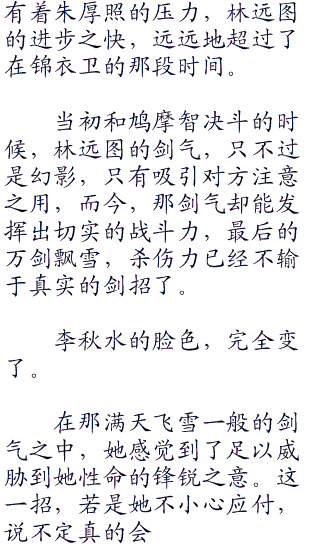 有着朱厚照的压力，林远图
的进步之快，远远地超过了
在锦衣卫的那段时间。
当初和鸠摩智决斗的时
候，林远图的剑气，只不过
是幻影，只有吸引对方注意
之用，而今，那剑气却能发
挥出切实的战斗力，最后的
万剑飘雪，杀伤力已经不输
于真实的剑招了。
李秋水的脸色，完全变
了。
在那满天飞雪一般的剑
气之中，她感觉到了足以威
胁到她性命的锋锐之意。这
一招，若是她不小心应付，
说不定真的会